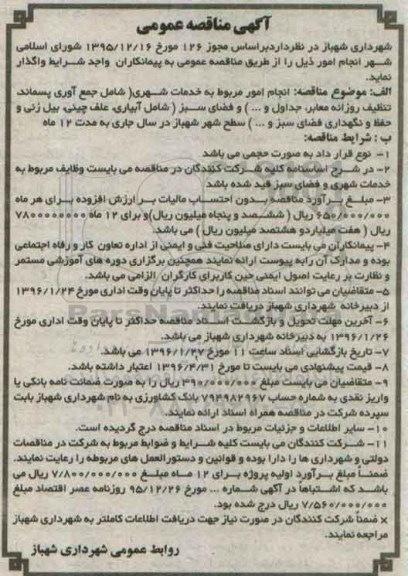 آگهی مناقصه عمومی
شهرداری شهباز در نظرداردبراساس مجوز ۱۲۶ مورخ ۱۳۹۵/۱۲/۱۶ شورای اسلامی
شهر انجام امور ذیل را از طریق مناقصه عمومی به پیمانکاران واجد شرایط واگذار
نماید.
الف: موضوع مناقصه: انجام امور مربوط به خدمات شهری( شامل جمع آوری پسماند،
تنظیف روزانه معابر، جداول و ... ) و فضای سبز ( شامل آبیاری، علف چینی، بیل زنی و
حفظ و نگهداری فضای سبز و ... ) سطح شهر شهباز در سال جاری به مدت ۱۲ ماه
ب : شرایط مناقصه:
۱- نوع قرار داد به صورت حجمی می باشد
۲- در شرح اساسنامه کلیه شرکت کنندگان در مناقصه می بایست وظایف مربوط به
خدمات شهری و فضای سبز قید شده باشد
۳- مبلغ برآورد مناقصه بدون احتساب مالیات بر ارزش افزوده برای هر ماه
۶۵۰/۰۰۰/۰۰۰ ریال ( ششصد و پنجاه میلیون ریال)و برای ۱۲ ماه ۷۸۰۰۰۰۰۰۰۰
ریال ( هفت میلیاردو هشتصد میلیون ریال ) می باشد.
۴- پیمانکاران می بایست دارای صلاحیت فنی و ایمنی از اداره تعاون کار و رفاه اجتماعی
بوده و مدارک آن رابه پیوست ارائه نمایند همچنین برگزاری دوره های آموزشی مستمر
و نظارت بر رعایت اصول ایمنی حین کاربرای کارگران الزامی می باشد.
۵- متقاضیان می توانند اسناد مناقصه را حداکثر تا پایان وقت اداری مورخ ۱۳۹۶/۱/۲۴
از دبیرخانه شهرداری شهباز دریافت نمایند.
۶- آخرین مهلت تحویل و بازگشت اسناد مناقصه حداکثر تا پایان وقت اداری مورخ
۱۳۹۶/۱/۲۶ به دبیرخانه شهرداری شهباز می باشد.
۷- تاریخ بازگشایی اسناد ساعت ۱۱ مورخ ۱۳۹۶/۱/۲۷ می باشد.
۸- قیمت پیشنهادی می بایست تا مورخ ۱۳۹۶/۴/۳۱ اعتبار داشته باشد.
۹- متقاضیان می بایست مبلغ ۳۹۰/۰۰۰/۰۰۰ ریال را به صورت ضمانت نامه بانکی یا
واریز نقدی به شماره حساب ۷۹۴۹۸۲۹۶۷ بانک کشاورزی به نام شهرداری شهباز بابت
سپرده شرکت در مناقصه همراه اسناد ارائه نمایند.
۱۰- سایر اطلاعات و جزئیات مربوط در اسناد مناقصه درج گردیده است.
۱۱- شرکت کنندگان می بایست کلیه شرایط و ضوابط مربوط به شرکت در مناقصات
دولتی و شهرداری ها را دارا بوده و قوانین و دستورالعمل های مربوطه را رعایت نمایند.
ضمناً مبلغ برآورد اولیه پروژه برای ۱۲ ماه مبلغ ۷/۸۰۰/۰۰۰/۰۰۰ ریال می
باشد که اشتباهاً در آگهی شماره ... مورخ ۹۵/۱۲/۲۶ روزنامه عصر اقتصاد مبلغ
۷/۵۶۰/۰۰۰/۰۰۰ ریال درج شده بود.
× ضمناً شرکت کنندگان در صورت نیاز جهت دریافت اطلاعات کاملتر به شهرداری شهباز
مراجعه نمایند.
روابط عمومی شهرداری شهباز